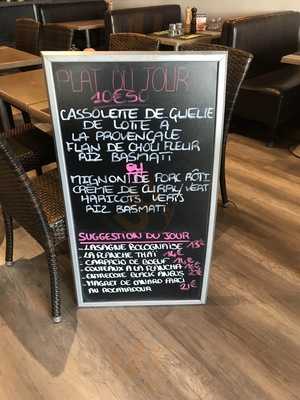 PLAT DU JOUR
10€50
CASSOLETTE DE GUELLE
DE LOTTE A LA
PROVENCALE
FLAN DE CHOU FLEUR
RIZ BASMATI
OU
MIGNON DE PORC RÔTI
CREME DE CURRY VERT
HARICOTS VERTS
RIZ BASMATI
SUGGESTION DU JOUR
- LASAGNE BOLOGNAISE 13€
- LA PLANCHE THAÏ
- CARPACIO DE BOEUF
- COUTEAUX A LA PLANCHA
- ENTRECOTE BLACK ANGUS
- MAGRET DE CANARD FARCI
AU ROCAMADOUR 21€